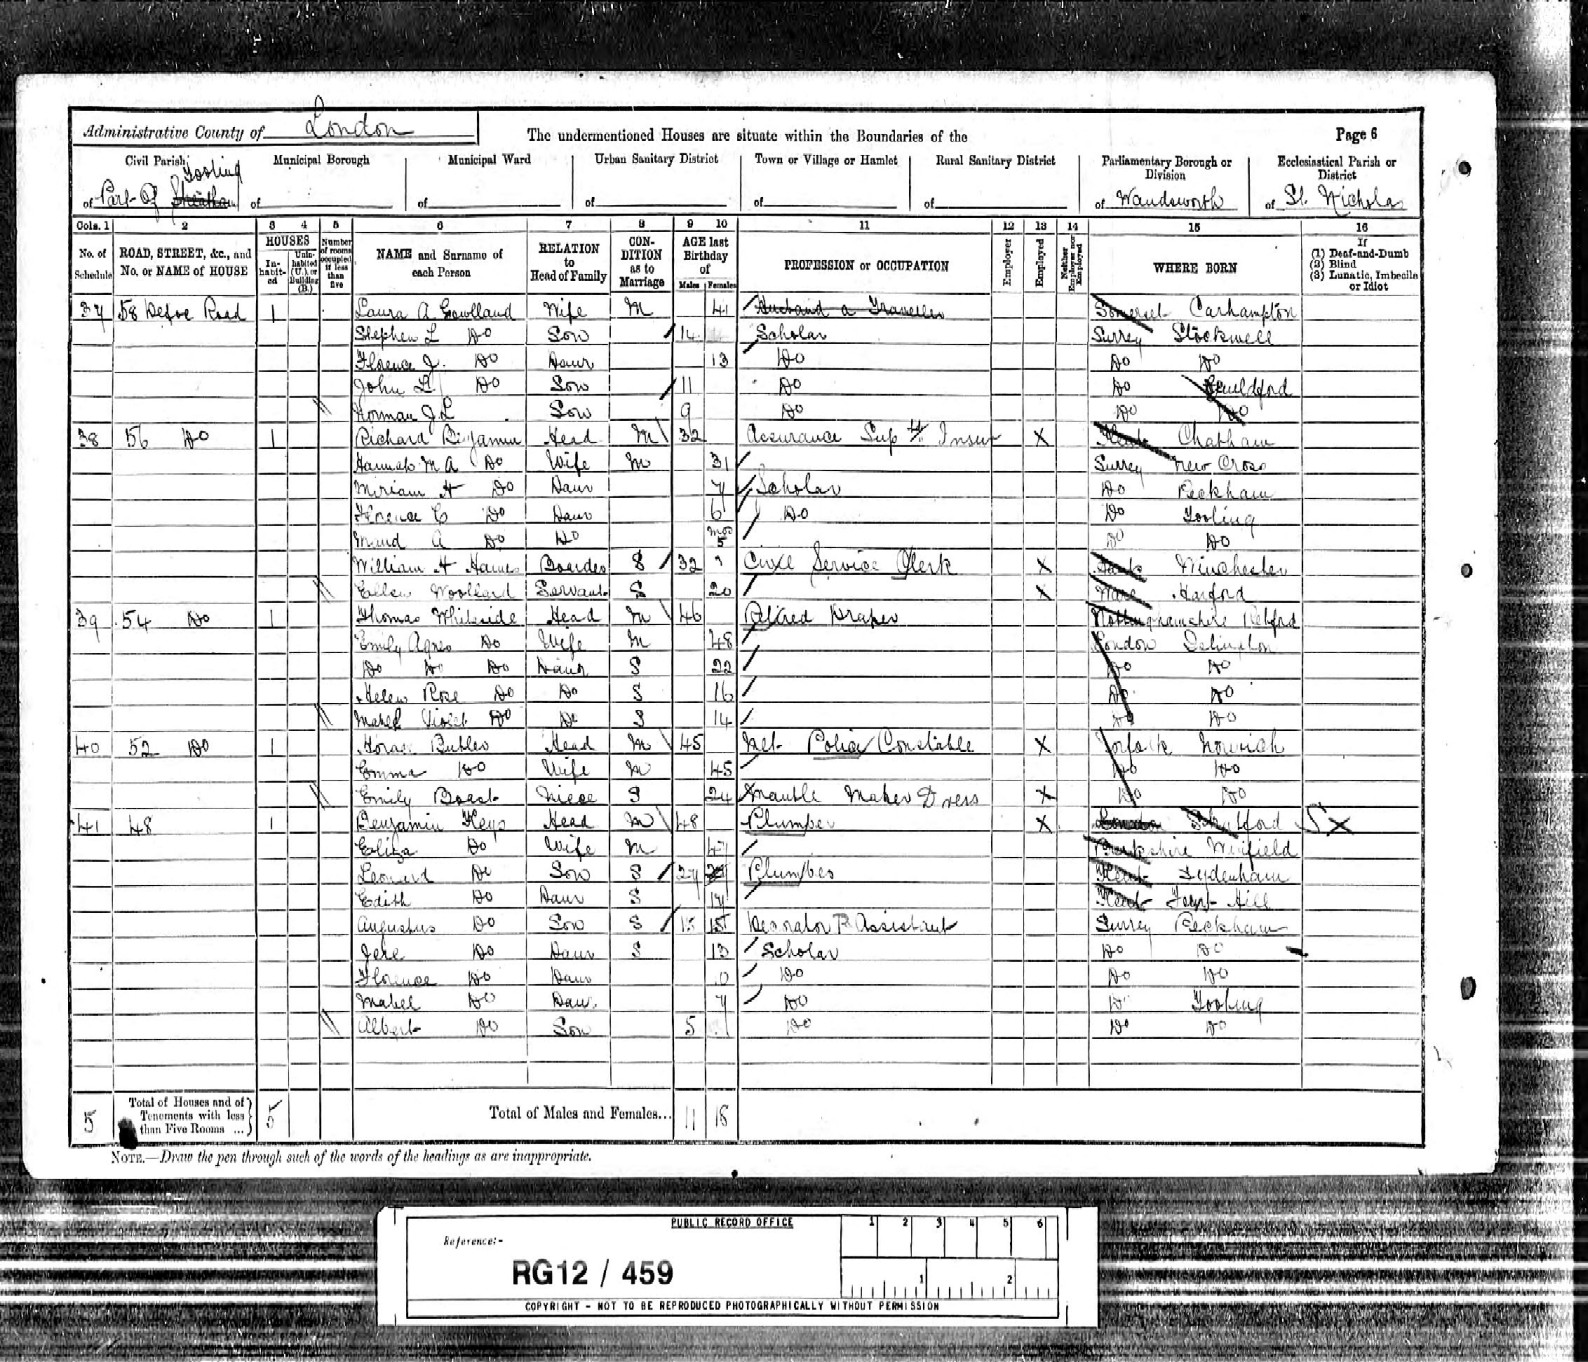 Administrative County of London
The undermentioned Houses are situate within the Boundaries of the
Page 6
Civil Parish of Part of Streatham Tooling
Municipal Borough of
Municipal Ward of
Urban Sanitary District of
Town or Village or Hamlet of
Rural Sanitary District of
Parliamentary Borough or Division of Wandsworth
Ecclesiastical Parish or District of St. Nicholas
Cols. 1 2 3 4 5 6 7 8 9 10 11 12 13 14 15 16
No. of Schedule
ROAD, STREET, &c., and No. or NAME of HOUSE
HOUSES
Inhabited
Uninhabited (U.) or Building (B.)
Number of rooms occupied if less than five
NAME and Surname of each Person
RELATION to Head of Family
CONDITION as to Marriage
AGE last Birthday of
Males Females
PROFESSION or OCCUPATION
Employer
Employed
Neither Employer nor Employed
WHERE BORN
If
(1) Deaf-and-Dumb
(2) Blind
(3) Lunatic, Imbecile or Idiot
37 58 Defoe Road 1 Laura A Gowlland Wife M 41 Husband a Traveller Somerset Carhampton
Stephen L Do Son 14 Scholar Surrey Stockwell
Florence J. Do Daur 13 Do Do Do
John L Do Son 11 Do Do Guildford
Norman J L Son 9 Do Do Do
38 56 Do 1 Richard Benjamin Head M 32 Assurance Supt Insur X Kent Chatham
Hannah M A Do Wife M 31 Surrey New Cross
Miriam H Do Daur 7 Scholar Do Peckham
Florence C Do Daur 6 Do Do Tooling
Maud A Do Do mos 5 Do Do
William H Boarder S 32 Civil Service Clerk X Hants Winchester
Ellen Woollard Servant S 20 X Harford
39 54 Do 1 Thomas Whiteside Head M 46 Retired Draper Nottinghamshire Retford
Emily Agnes Do Wife M 48 London Islington
Do Do Do Daur S 22 Do Do
Helen Rose Do Do S 16 Do Do
Mabel Violet Do Do S 14 Do Do
40 52 Do 1 Horace Butler Head M 45 Met. Police Constable X Norfolk Norwich
Emma Do Wife M 45 Do Do
Emily Niece S 24 Mantle Maker Dress X Do Do
41 48 1 Benjamin Heys Head M 48 Plumber X London 5X
Eliza Do Wife M 47 Berkshire Winfield
Leonard Do Son S 21 Plumber Kent Sydenham
Edith Do Daur S 17 Kent Forest Hill
Augustus Do Son S 15 Decorator's Assistant Surrey Peckham
Do Daur S 13 Scholar Do Do
Florence Do Daur Do Do Do
Mabel Do Daur. 7 Do Do Tooling
Albert Do Son 5 Do Do Do
5 Total of Houses and of Tenements with less than Five Rooms ... 5
Total of Males and Females... 11 18
NOTE.—Draw the pen through such of the words of the headings as are inappropriate.
PUBLIC RECORD OFFICE
1 2 3 4 5 6
Reference:-
RG12 / 459
1 2
COPYRIGHT - NOT TO BE REPRODUCED PHOTOGRAPHICALLY WITHOUT PERMISSION